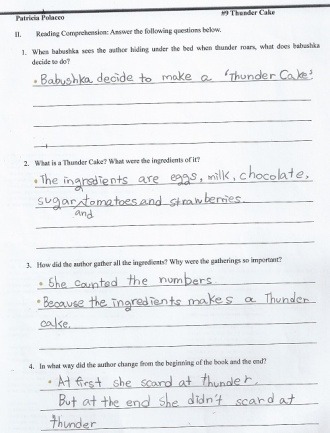 Patricia Polacco #9 Thunder Cake
II. Reading Comprehension: Answer the following questions below.
1. When babushka sees the author hiding under the bed when thunder roars, what does babushka
decide to do?
• Babushka decide to make a 'Thunder Cake'
2. What is a Thunder Cake? What were the ingredients of it?
• The ingredients are eggs, milk, chocolate,
sugar, tomatoes and strawberries
and
3. How did the author gather all the ingredients? Why were the gatherings so important?
• She counted the numbers
• Because the ingredients makes a Thunder
cake.
4. In what way did the author change from the beginning of the book and the end?
• At first she scard at thunder.
But at the end she didn't scard at
thunder